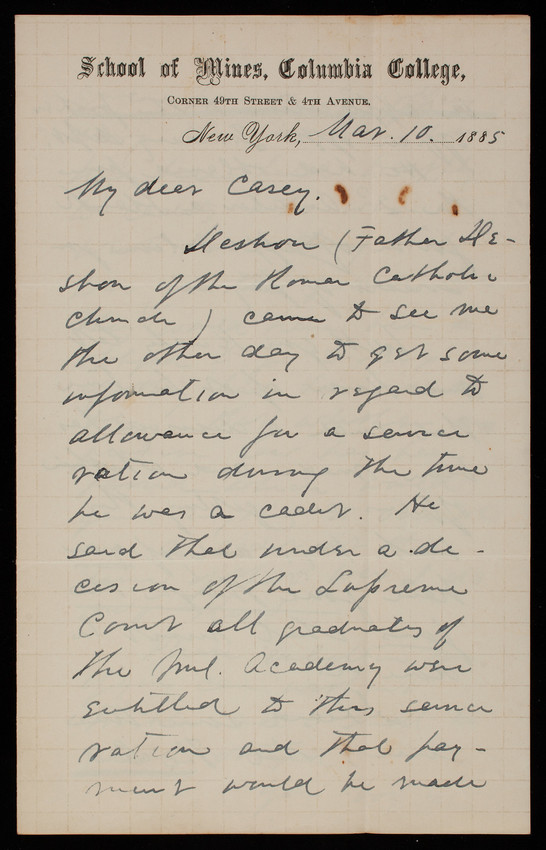 School of Mines, Columbia College,
Corner 49th Street & 4th Avenue.
New York, Mar. 10. 1885
My dear Casey.
Deshon (Father De-
shon of the Roman Catholic
Church) came to see me
the other day to get some
information in regard to
allowance for a service
ration during the time
he was a cadet. He
said that under a de-
cision of the Supreme
Court all graduates of
the Mil. Academy were
entitled to this service
ration and that pay-
ment would be made